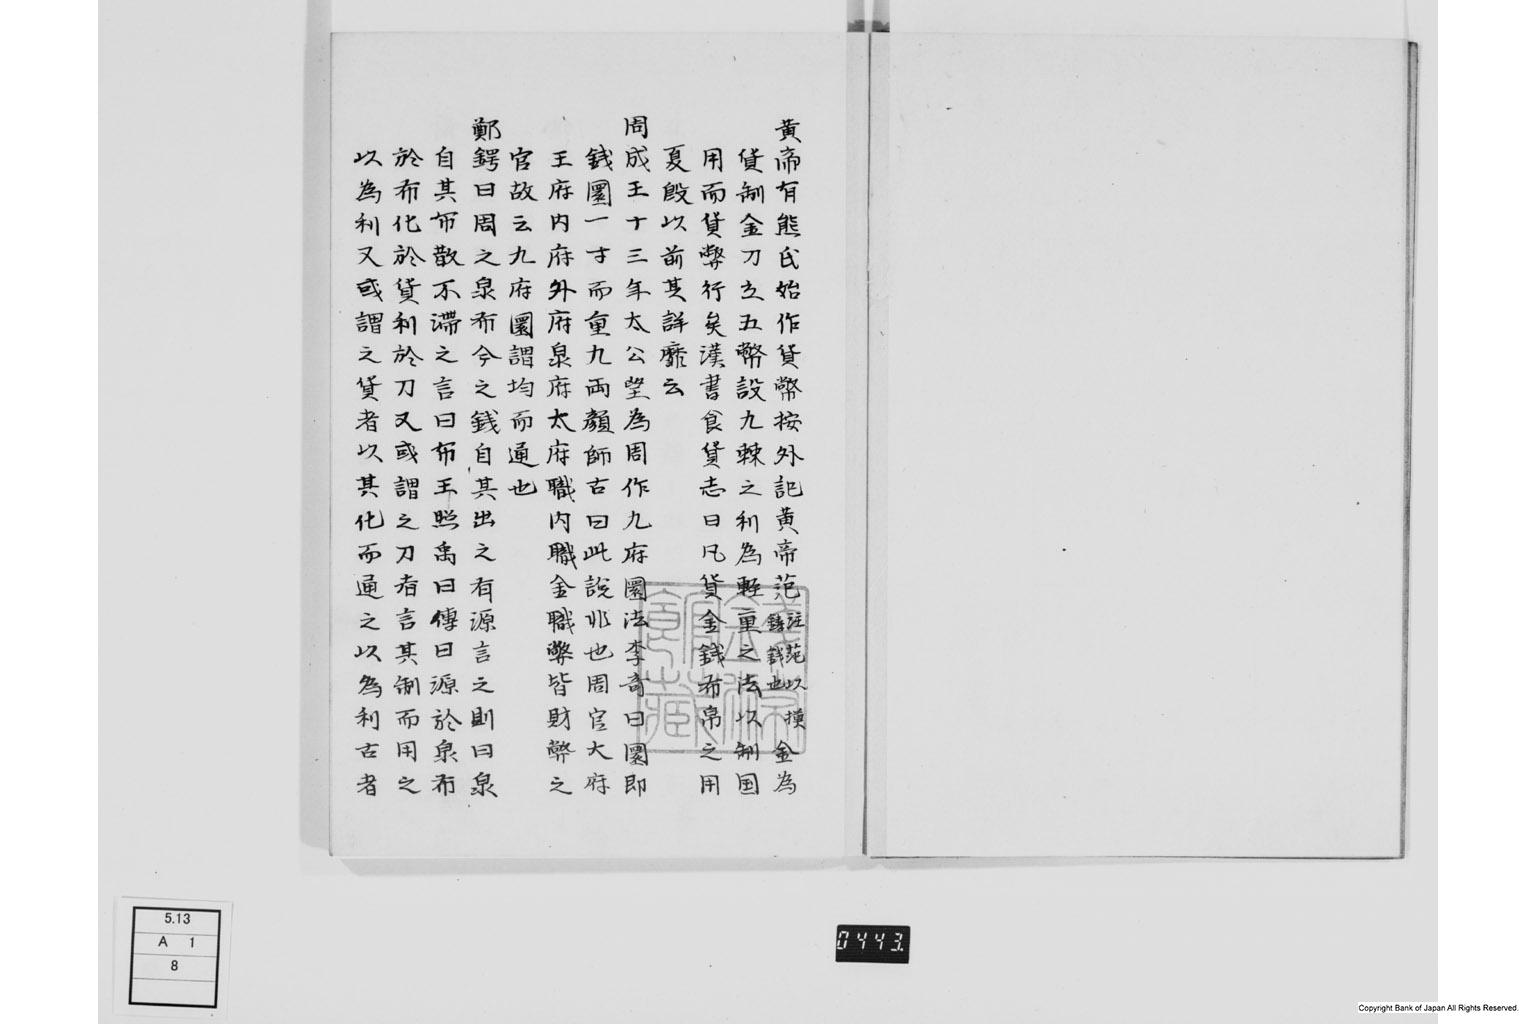 黄帝有熊氏始作貨幣按外記黄帝范註范以模鋳銭也金為
貨制金刀立五幣設九棘之利為軽重之法以制国
用而貨幣行矣漢書食貨志曰凡貨金銭布帛之用
夏殷以前其詳靡云
周成王十三年太公望為周作九府圜法李奇曰圜即
銭圜一寸而重九両顔師古曰此説非也周官大府
王府内府外府泉府太府職内職金職幣皆財幣之
官故云九府圜謂均而通也
鄭鍔曰周之泉布今之銭自其出之有源言之則曰泉
自其布散不滞之言曰布王照禹曰傳曰源於泉布
於布化於貨利於刀又或謂之刀者言其制而用之
以為利又或謂之貨者以其化而通之以為利古者
銭幣館蔵
5.13
A 1
8
0443.
Copyright Bank of Japan All Rights Reserved.